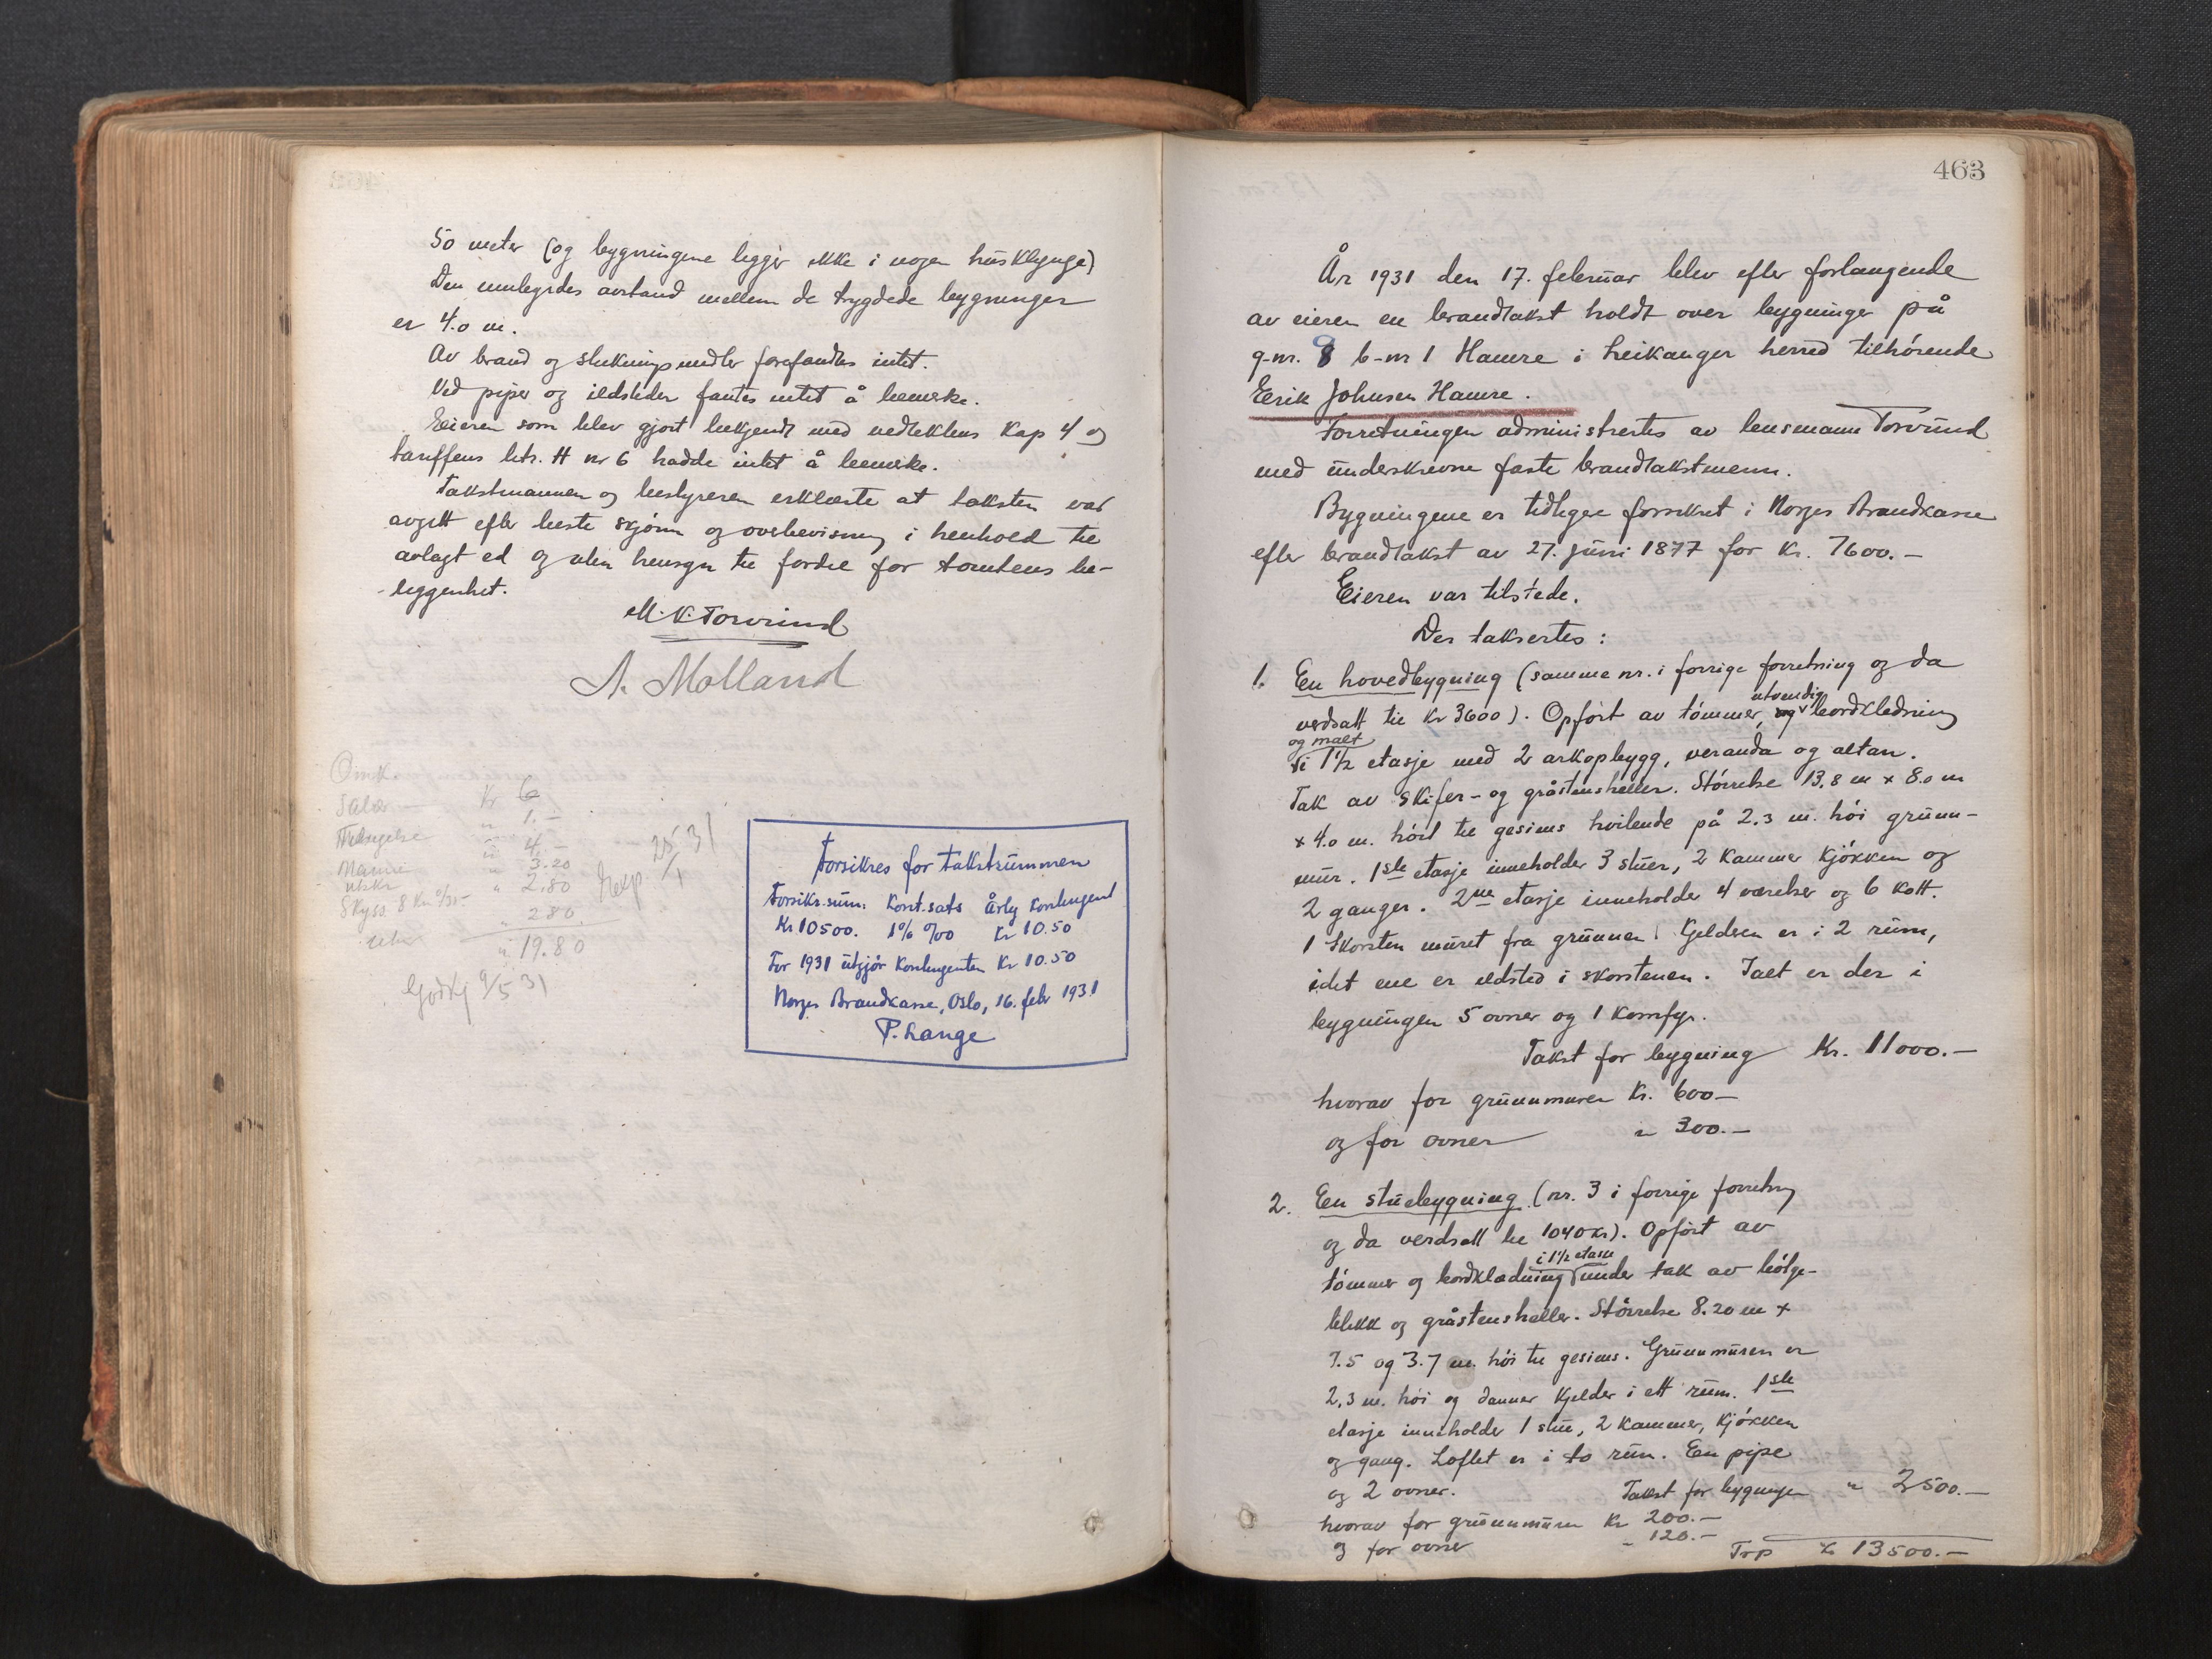 50 meter (og bygningene ligger ikke i nogen husklynge)
Den innbyrdes avstand mellem de trygdede bygninger
er 4.0 m.
Av brand og slukningsmedler forefandtes intet.
Ved piper og ildsteder fantes intet å bemerke.
Eieren som blev gjort bekjendt med vedtektens Kap 4 og
tariffens litr. H nr 6 hadde intet å bemerke.
Takstmannen og bestyreren erklærte at taksten var
avgitt efter beste skjønn og overbevisning i henhold til
avlagt ed og uten hensyn til fordel for tomtens be-
-liggenhet.
M. K. Torvund
A. Molland
Omk.
Salær Kr 6
" 1.-
" 4.-
" 3.20
Skyss 8 Km " 2.80
" 280
" 19.80
Godkj 9/5 31
Eksp. 25/1 31
Forsikres for takstsummen
Forsikr.sum: Kont.sats Årlig Kontingent
Kr 10500. 1 % 0/00 Kr 10.50
For 1931 utgjør Kontingenten Kr 10.50
Norges Brandkasse, Oslo, 16. febr 1931
P. Lange
463
År 1931 den 17. februar blev efter forlangende
av eieren en brandtakst holdt over bygninger på
g-nr. 8 b-nr 1 Hamre i Leikanger herred tilhörende
Eerik Johnsen Hamre.
Forretningen administrertes av lensmann Torvund
med underskrevne faste brandtakstmenn.
Bygningene er tidligere forsikret i Norges Brandkasse
efter brandtakst av 27. juni 1877 for Kr. 7600.-
Eieren var tilstede.
Der taksertes:
1. En hovedbygning (samme nr. i forrige forretning og da
utvendig
verdsatt til Kr 3600). Opfört av tömmer, og bordkledning
og malt
i 1 1/2 etasje med 2 arkopbygg, veranda og altan.
Tak av skifer- og gråstensheller. Störrelse 13.8 m x 8.0 m
x 4.0 m. höid til gesims hvilende på 2.3 m. höi grunn-
mur. 1ste etasje inneholder 3 stuer, 2 kammer kjökken og
2 ganger. 2ne etasje inneholder 4 værelser og 6 kott.
1 Skorsten muret fra grunnen. Kjelderen er i 2 rum,
i det ene er ildsted i skorstenen. Ialt er der i
bygningen 5 ovner og 1 Komfyr.
Takst for bygning Kr. 11000.-
hvorav for grunnmuren Kr. 600-
og for ovner " 300.-
2. En stuebygning (nr. 3 i forrige forretn
og da verdsatt til 1040 kr). Opfört av
i 1 1/2 etasje
tömmer og bordkledning under tak av bölge-
blikk og gråstensheller. Störrelse 8.20 m x
7.5 og 3.7 m. höi til gesims. Grunnmuren er
2,3 m. höi og danner Kjelder i ett rum. 1ste
etasje inneholder 1 stue, 2 kammer, Kjökken
og gang. Loftet er i to rum. En pipe
og 2 ovner. Takst for bygningen " 2500.-
hvorav for grunnmuren Kr 200.-
og for ovner " 120.-
Trp Kr 13500.-